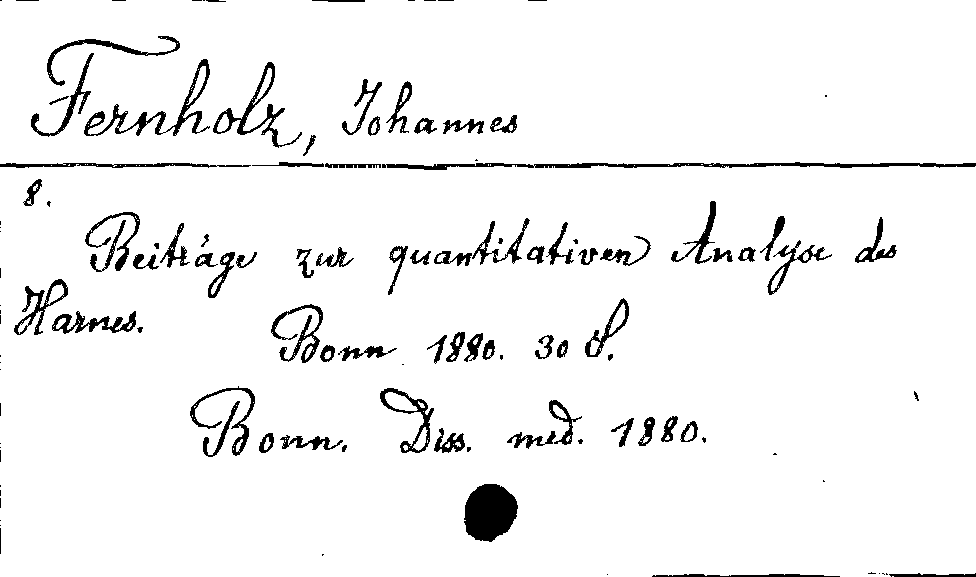 Fernholz, Johannes
8.
Beiträge zur quantitativen Analyse des
Harnes.
Bonn 1880. 30 S.
Bonn. Diss. med. 1880.